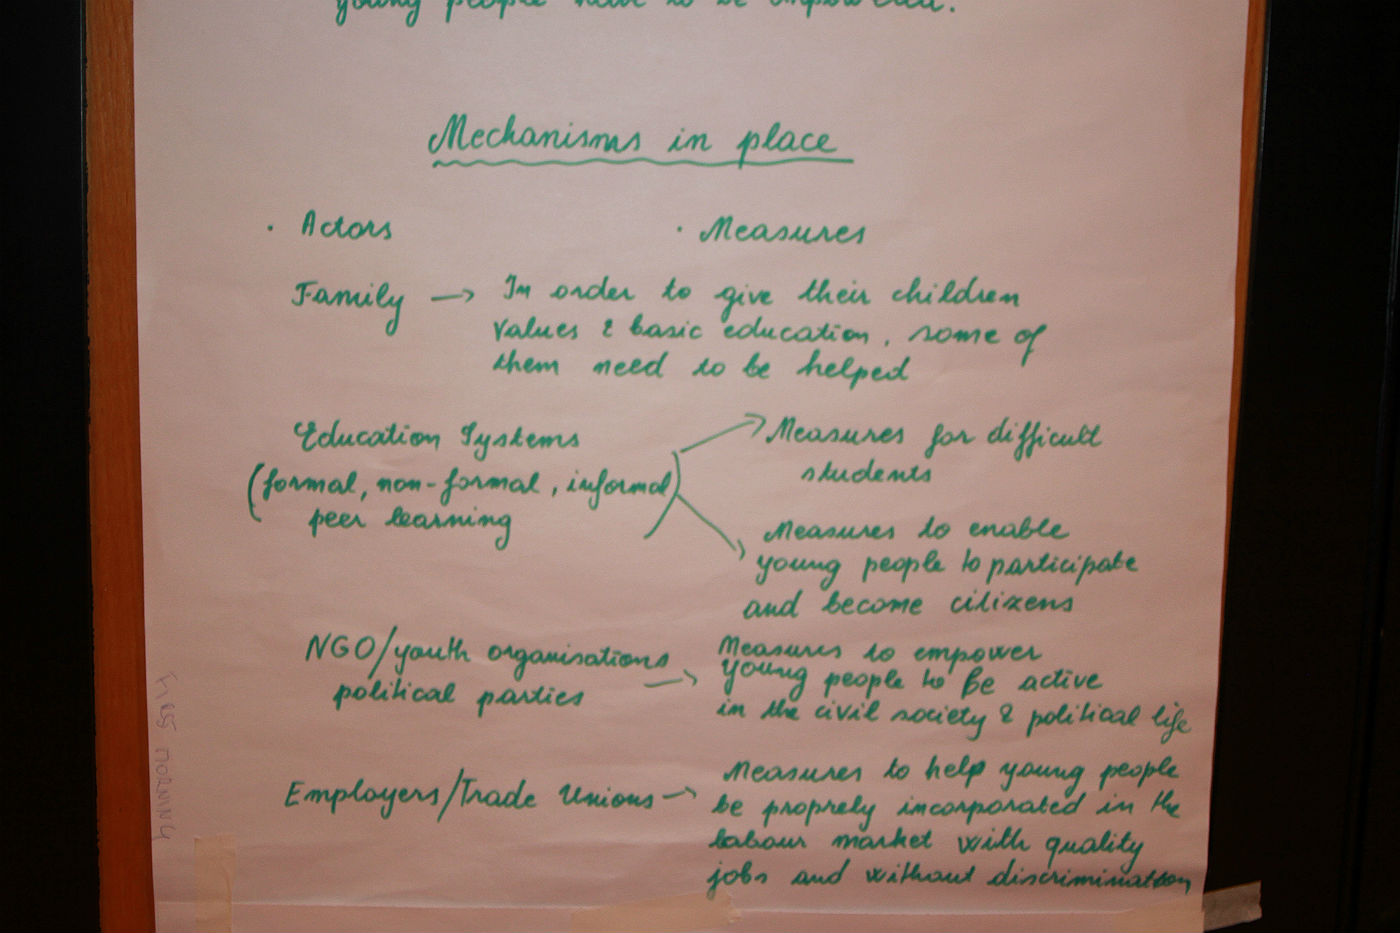 young people have to be empowered.
Mechanisms in place
· Actors
· Measures
Family → In order to give their children
values & basic education, some of
them need to be helped
Education Systems
(formal, non-formal, informal)
peer learning
→ Measures for difficult
students
→ Measures to enable
young people to participate
and become citizens
NGO/youth organisations
political parties →
Measures to empower
young people to be active
in the civil society & political life
Employers/Trade Unions →
Measures to help young people
be proprely incorporated in the
labour market with quality
jobs and without discrimination
MORNING